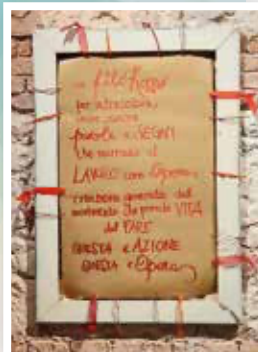 un filo Rosso
per
parole e SEGNI
che narrano il
LAVORO come Opera
creazione generata dal
movimento che prende VITA
dal FARE
QUESTA è AZIONE
QUESTA è Opera